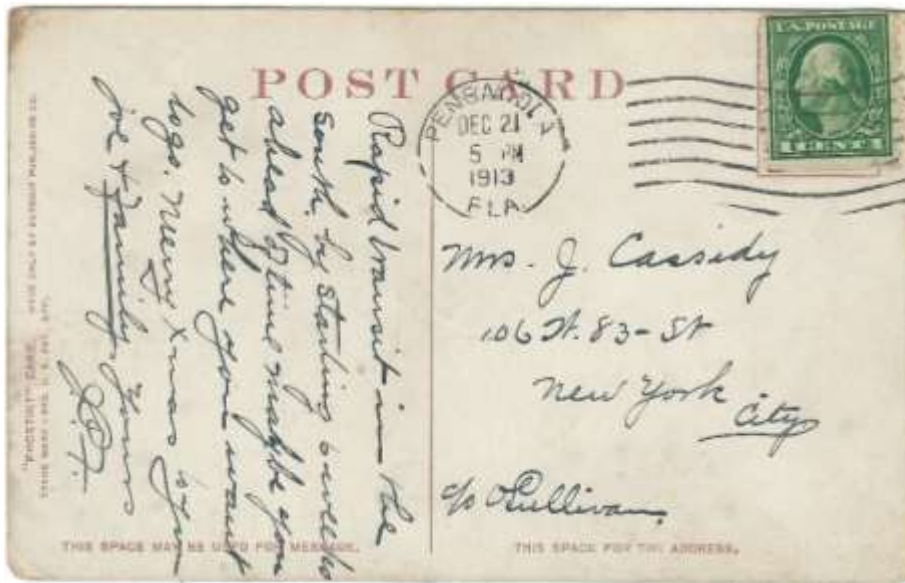 POST CARD
U.S. POSTAGE
1 CENT 1
PENSACOLA
DEC 21
5 PM
1913
FLA
Rapid transit in the
South, by starting
ahead of time maybe you
get to where you want
to go. Merry Xmas to you
Joe & Family. Yours
J.F.
Mrs. J. Cassidy
106 W. 83- St
New York
City
c/o O'Sullivan
"PHOSTINT" CARD.
MADE ONLY BY DETROIT PUBLISHING CO.
TRADE MARK REG. U.S. PAT. OFF.
THIS SPACE MAY BE USED FOR MESSAGE.
THIS SPACE FOR THE ADDRESS.